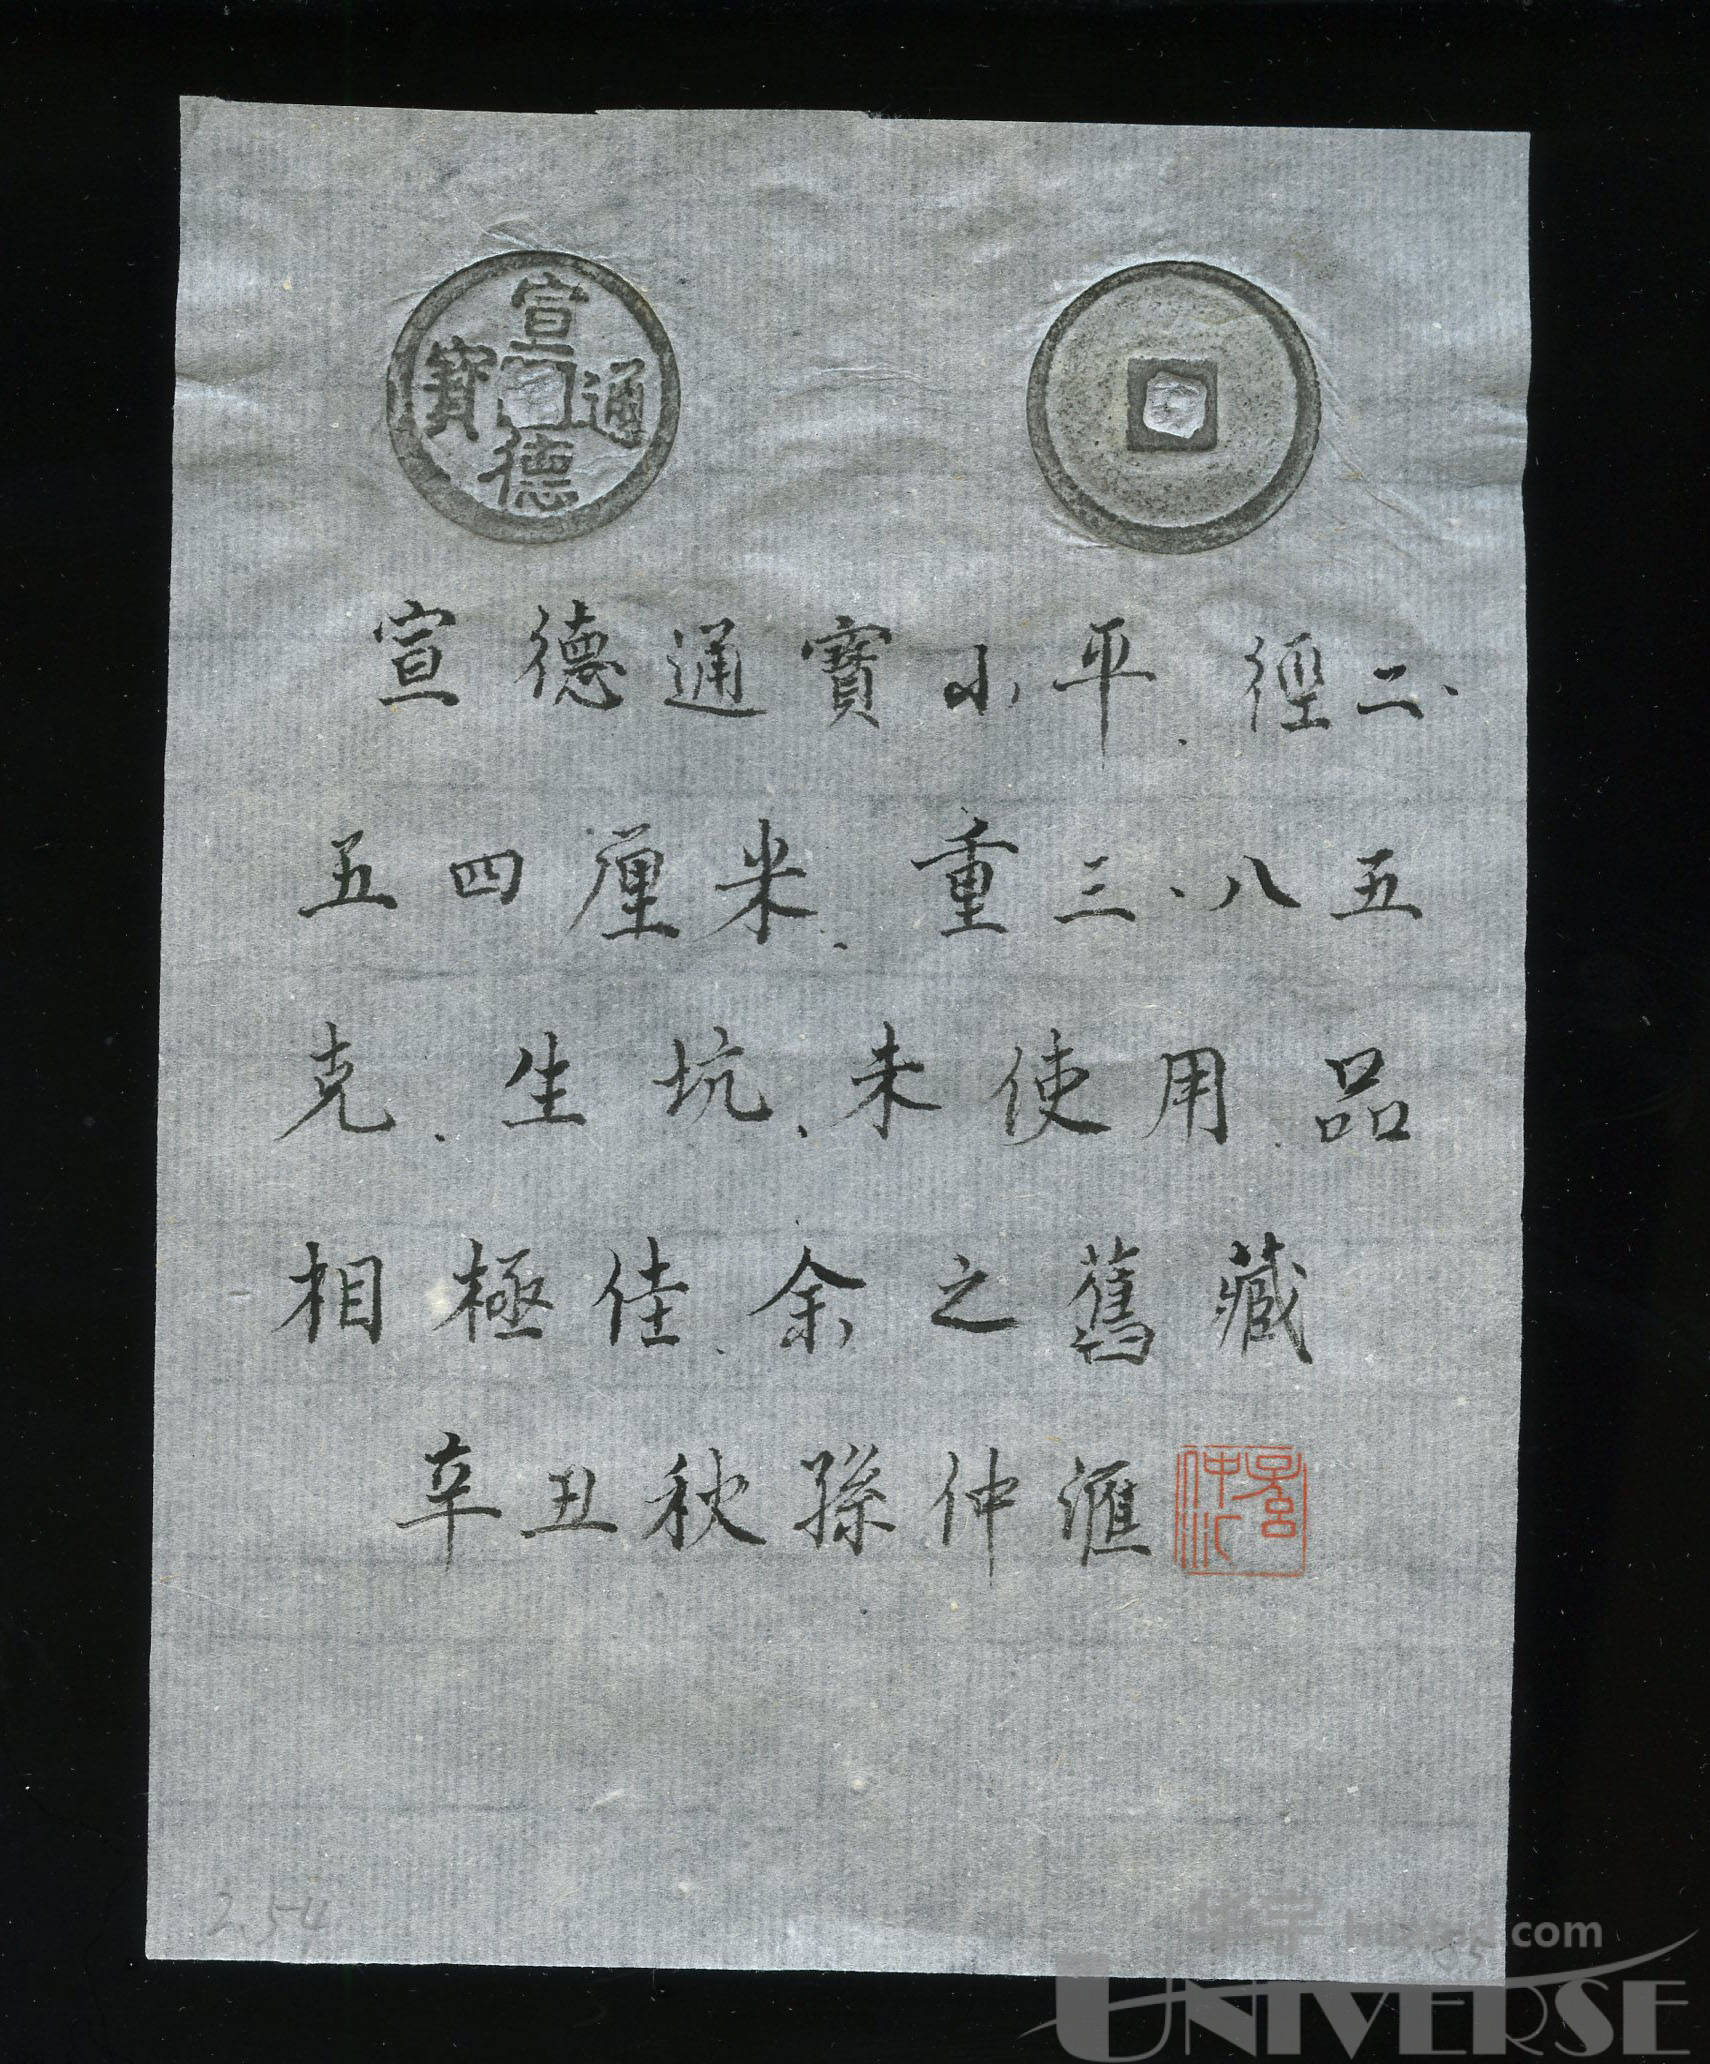 宣
德
通
寶
宣德通寶小平、徑二、
五四厘米、重三、八五
克、生坑、未使用、品
相極佳、余之舊藏
辛丑秋孫仲滙
2.54
华宇 .com
UNIVERSE